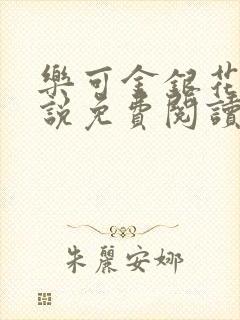 樂可金銀花
說免費閱讀
朱麗安娜